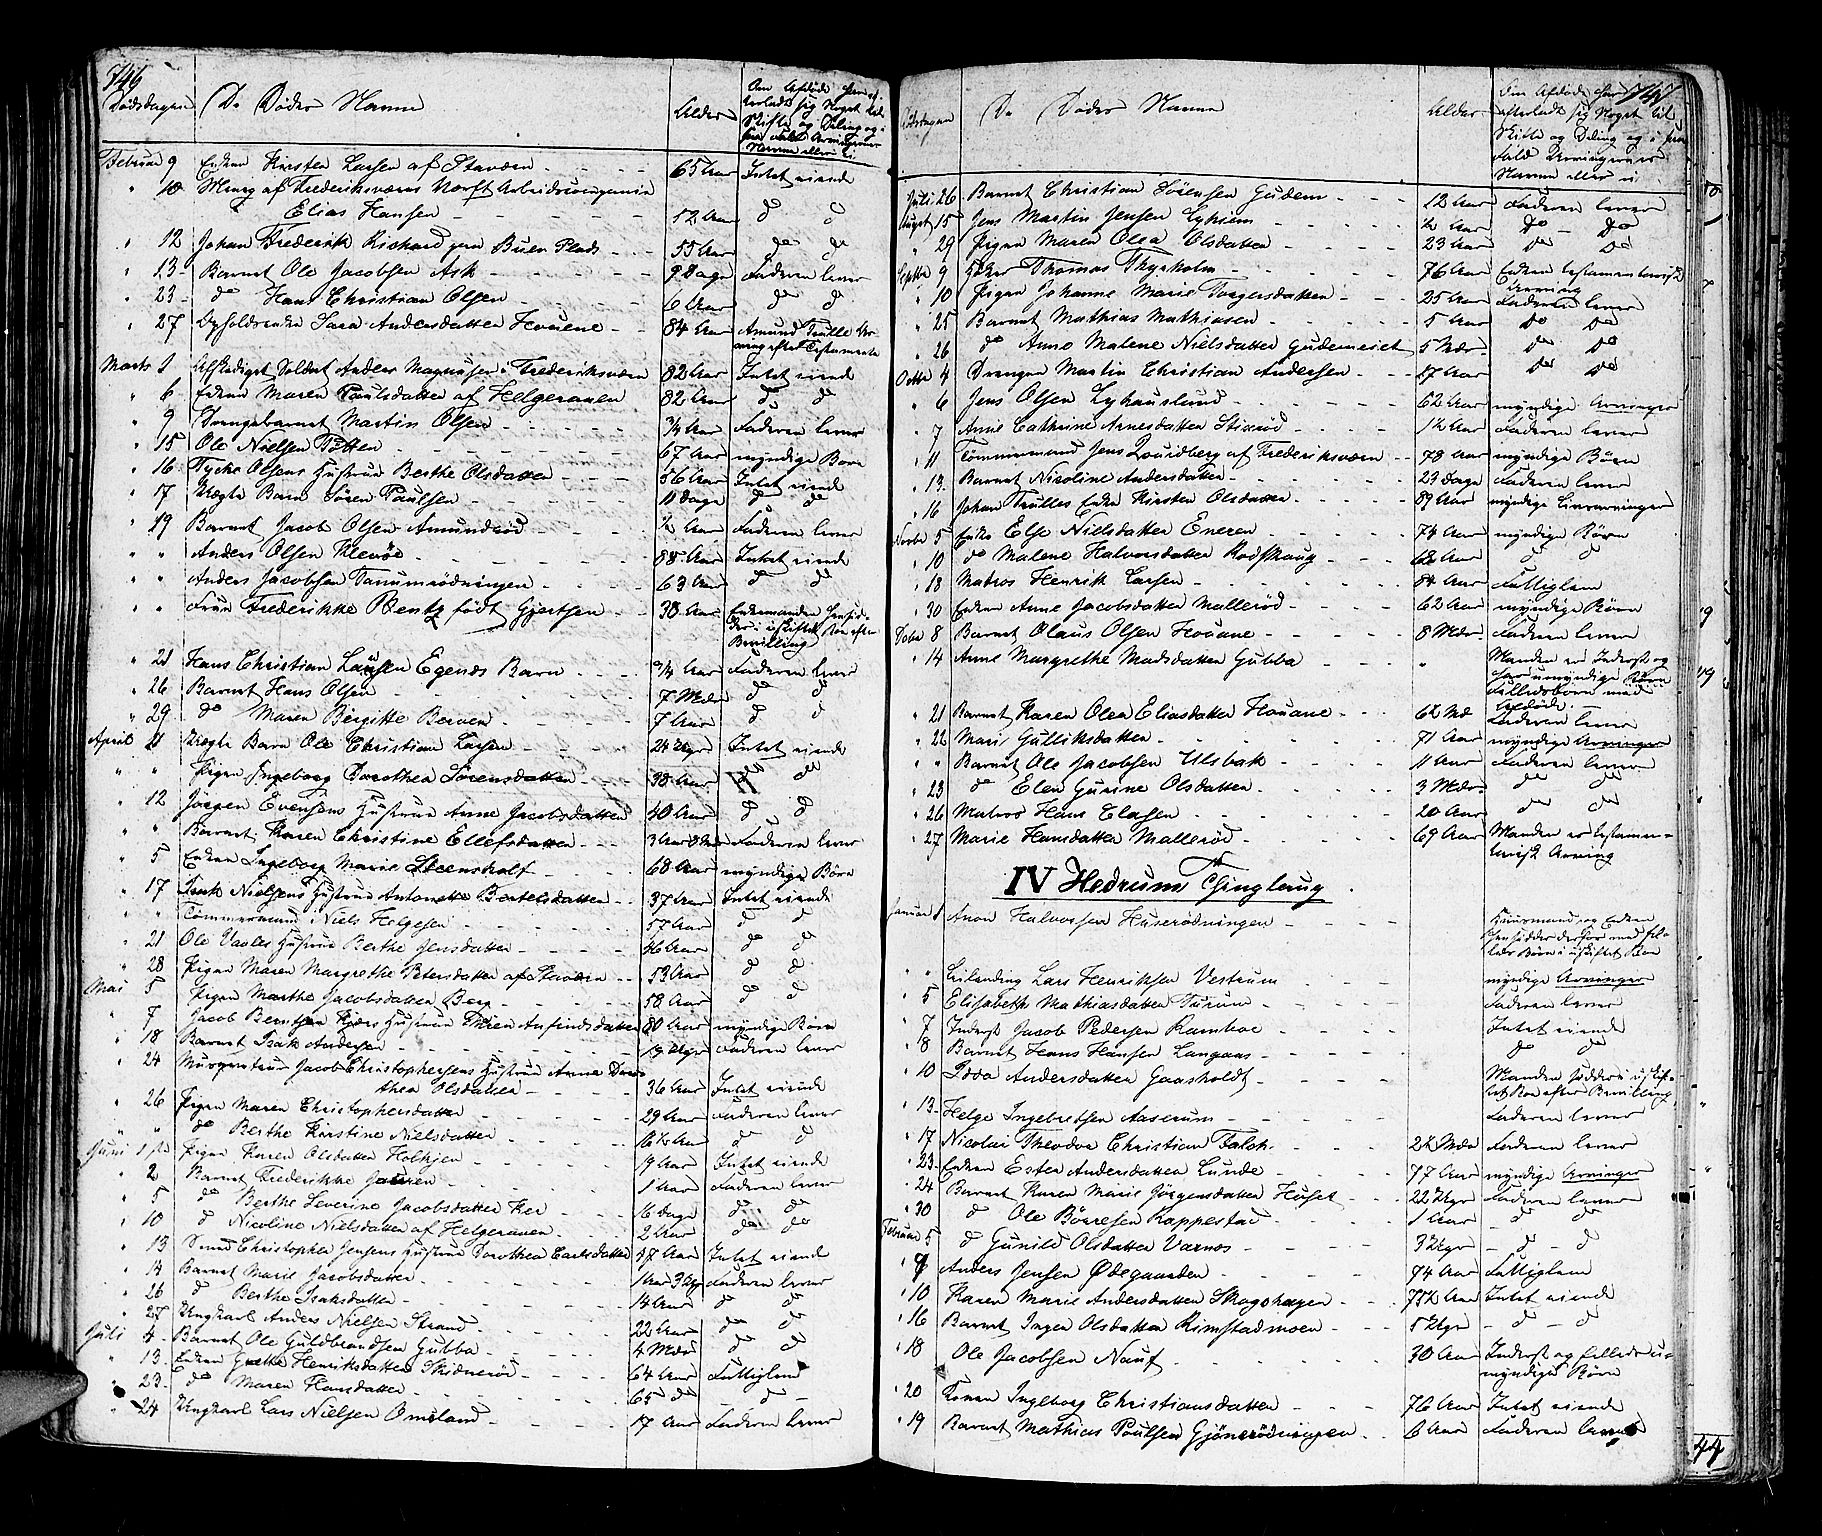 746
Dødsdagen De Dødes Navne Alder Om Afdøde har ef-
terladt sig Noget til
Skifte og Deling og i
saa Fald Arvingernes
Navne eller ei
Februar 9 Enken Kirsten Larsen af Stavern 65 Aar Intet eiende
" 10 Menig af Frederiksværns Norske Arbeidscompagnie
Elias Hansen 52 Aar do do
" 12 Johan Frederik Richard paa Buen Plads 55 Aar do do
" 13 Barnet Ole Jacobsen Ask 9 Dage Faderen lever
" 23 do Hans Christian Olsen 6 Aar do do
" 27 Opholdsenke Sara Andersdatter Houene 84 Aar Amund Trulle Ar-
ving efter Testamente
Marts 1 Afskediget Soldat Anders Magnussen i Frederiksværn 82 Aar Intet eiende
" 6 Enken Maren Paulsdatter af Helgeraaen 82 Aar do do
" 9 Drengebarnet Martin Olsen 3/4 Aar Faderen lever
" 15 Ole Nielsen Tøtten 67 Aar myndige Børn
" 16 Tycho Olsens Hustrue Berthe Olsdatter 56 Aar Intet eiende
" 17 Uægte Barn Søren Paulsen 11 Dage do do
" 19 Barnet Jacob Olsen Amundrød 1/2 Aar Faderen lever
" " Anders Olsen Klevøe 88 Aar Intet eiende
" " Anders Jacobsen Tanumrødningen 63 Aar do do
" " Fru Frederikke Rentz født Gjertsen 38 Aar Enkemanden hensid-
der i uskiftet Boe efter
Bevilling
" 21 Hans Christian Laursen Egends Barn 3/4 Aar Faderen lever
" 26 Barnet Hans Olsen 7 Mdr do do
" 29 do Maren Birgitte Berven 7 Aar do do
April 1 Uægte Barn Ole Christian Larsen 24 Uger Intet eiende
" " Pigen Ingeborg Dorothea Sørensdatter 38 Aar do do
" 12 Jørgen Evensens Hustrue Anne Jacobsdatter 40 Aar do do
" " Barnet Karen Christine Ellefsdatter 3 Aar 8 Mdr Faderen lever
" 5 Enken Ingeborg Marie Steensholt 68 Aar myndige Børn
" 17 Isak Nielsens Hustrue Antonette Bertelsdatter 37 Aar Intet eiende
" " Tømmermand Niels Helgesen 57 Aar do do
" 21 Ole Vaales Hustrue Berthe Jensdatter 46 Aar do do
" 28 Pigen Maren Margrethe Petersdatter af Stavern 53 Aar do do
Mai 5 Pigen Marthe Jacobsdatter Berg 58 Aar do do
" 7 Jacob Berntsen Kjærs Hustrue Thoren Anfindsdatter 80 Aar myndige Børn
" 18 Barnet Isak Andersen 19 Uger Faderen lever
" 24 Murgentrup Jacob Christophersens Hustrue Anne Doro-
thea Olsdatter 36 Aar Intet eiende
" 26 Pigen Maren Christophersdatter 29 Aar Faderen lever
" " do Berthe Kirstine Nielsdatter 16 1/2 Aar do do
Juni 1ste Pigen Karen Olsdatter Holkjen 19 Aar Intet eiende
" 2 Barnet Frederikke 1 Aar Faderen lever
" 5 do Berthe Severine Jacobsdatter Roe 16 Dage do do
" 10 do Nicoline Nielsdatter af Helgeraaen 2 Aar do do
" 13 Smed Christopher Jensens Hustrue Dorothea Carlsdatter 57 Aar Intet eiende
" 14 Barnet Marie Jacobsdatter 1 Aar 3 Uger Faderen lever
" 26 do Berthe Isaksdatter 14 Aar do do
" 27 Ungkarl Anders Nielsen Strand 22 Aar do do
Juli 4 Barnet Ole Guldbrandsen Gubba 4 Mdr do do
" 13 Enken Grethe Henriksdatter Skidnerød 64 Aar Fattiglem
" 23 do Maren Hansdatter 65 do do
" 24 Ungkarl Lars Nielsen Omsland 17 Aar Faderen lever
747
Dødsdagen De Dødes Navne Alder Om Afdøde har
efterladt sig Noget til
Skifte og Deling og i saa
Fald Arvingernes
Navne eller ei
Juli 26 Barnet Christian Sørensen Gudem 12 Aar Faderen lever
August 15 Jens Martin Jensen Lyhuum 1/2 Aar do do
" 29 Pigen Maren Olea Olsdatter 23 Aar do do
Septbr 9 Thomas Thyrholm 76 Aar Enken testamentarisk
Arving
" 10 Pigen Johanne Marie Torgersdatter 25 Aar Faderen lever
" 25 Barnet Mathias Mathiasen 5 Aar do do
" 26 do Anne Malene Nielsdatter Gudemeiet 5 Mdr do do
Octbr 4 Drengen Martin Christian Andersen 17 Aar do do
" 6 Jens Olsen Lyhauslund 62 Aar myndige Arvinger
" 7 Anne Cathrine Arnesdatter Stixrød 12 Aar Faderen lever
" 11 Tømmermand Jens Qvidberg af Frederiksværn 78 Aar myndige Børn
" 13 Barnet Nicoline Andersdatter 23 Dage Faderen lever
" 16 Johan Trulles Enke Kirsten Olsdatter 89 Aar myndige Livsarvinger
Novbr 5 Enke Else Nielsdatter Eneren 74 Aar myndige Børn
" 10 do Malene Halvorsdatter Rødskaug 68 Aar do do
" 18 Matros Henrik Larsen 84 Aar Fattiglem
" 30 Enken Anne Jacobsdatter Mallerød 62 Aar myndige Børn
Decbr 8 Barnet Olaus Olsen Houane 8 Mdr Faderen lever
" 14 Anne Margrethe Madsdatter Gubba " Manden er Inderst og
har umyndige Børn
Fælledsboren med
Afdøde.
" 21 Barnet Karen Olea Eliasdatter Houane 6 1/2 Md Faderen lever
" 22 Marie Gulliksdatter 71 Aar myndige Arvinger
" " Barnet Ole Jacobsen Ulsbak 11 Aar Faderen lever
" 23 do Elen Gurine Olsdatter 3 Mdr do do
" 26 Matros Hans Clasen 20 Aar do do
" 27 Marie Hansdatter Mallerød 69 Aar Manden er testamen-
tarisk Arving
IV Hedrum Thinglaug.
Januar 1 Anon Halvorsen Huserødningen Huusmand og Enken
hensidder derfor med fæl-
leds Børn i uskiftet Boe
" " Leilending Lars Henriksen Vestrum myndige Arvinger
" 5 Elisabeth Mathiasdatter Tuium Faderen lever
" 7 Inderst Jacob Pedersen Ramboe Intet eiende
" 8 Barnet Hans Hansen Langaas do do
" 10 Idda Andersdatter Gaasholdt Manden sidder i uskif-
tet Boe efter Bevilling
" 13 Helge Ingebretsen Aaserum Faderen lever
" 17 Nicolai Theodor Christian Falch 2 1/2 Mdr Faderen lever
" 23 Enken Ester Andersdatter Lunde 77 Aar myndige Arvinger
" 24 Barnet Karen Marie Jørgensdatter Huset 22 Uger Faderen lever
" 30 do Ole Børresen Kappestad 1 Aar do do
Februar 5 do Gunild Olsdatter Varnes 3 Uger do do
" 7 Anders Jensen Ødegaarden 74 Aar Fattiglem
" 10 Karen Marie Andersdatter Skogshagen 77 1/2 Aar Intet eiende
" 16 Barnet Inger Olsdatter Rimstadmoen 5 Uger do do
" 18 Ole Jacobsen Nauf 30 Aar Inderst og fælleds u-
myndige Børn
" 20 Konen Ingeborg Christiansdatter 76 Aar Intet eiende
" 19 Barnet Mathias Paulsen Gjønerødningen 6 Aar Faderen lever
44